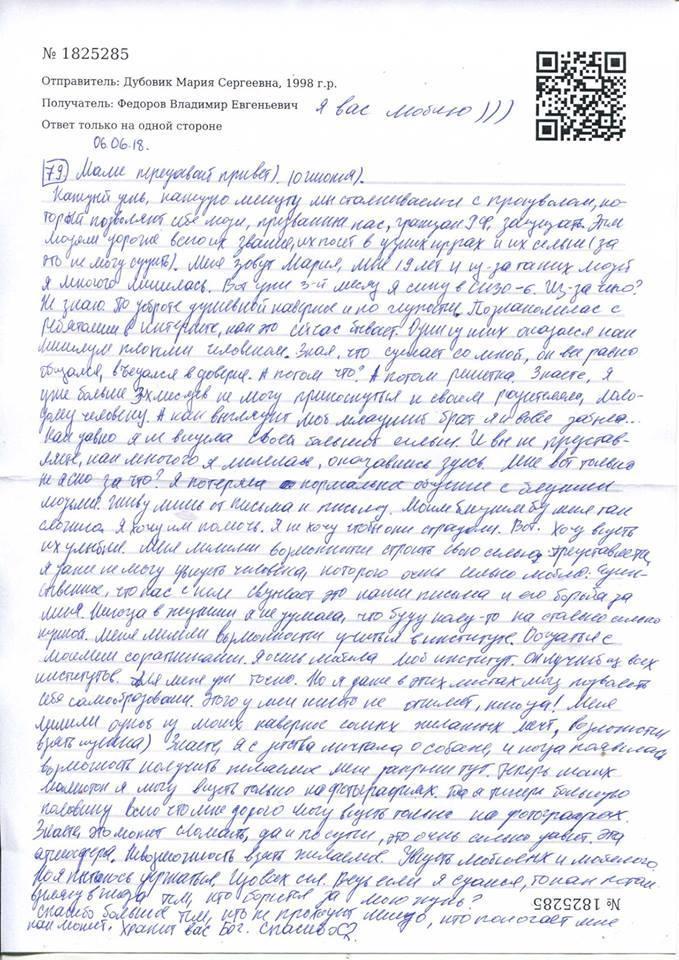 № 1825285
Отправитель: Дубовик Мария Сергеевна, 1998 г.р.
Получатель: Федоров Владимир Евгеньевич я вас люблю )))
Ответ только на одной стороне
06.06.18.
79 Маме передавай привет).
Каждый день, каждую минуту мы сталкиваемся с произволом, ко-
торый позволяют себе люди, призванные нас, граждан РФ, защищать. Этим
людям дороже всего их звание, их посет в узких кругах и их семьи (за
это не могу судить). Меня зовут Мария, мне 19 лет и из-за таких людей
я многого лишилась. Вот уже 3-й месяц я сижу в СИЗО-6. Из-за чего?
Не знаю. По доброте душевной наверное и по глупости. Познакомилась с
ребятами в интернете, как это сейчас бывает. Один из них оказался как
минимум плохим человеком. Зная, что сделает со мной, он все равно
общался, въедался в доверие. А потом что? А потом решетка. Знаете, я
уже больше 3х месяцев не могу прикоснуться к своим родителям, моло-
дому человеку. А как выглядит мой младший брат я и вовсе забыла...
Как давно я не видела своей большой семьи. И вы не представ-
ляете, как многого я лишилась, оказавшись здесь. Мне вот только
не ясно за что? Я потеряла нормальное общение с близкими
людьми. Живу лишь от письма к письму. Моим близким без меня так
сложно. Я хочу им помочь. Я не хочу чтобы они страдали. Вот. Хочу видеть
их улыбки. Меня лишили возможности строить свою семью. Представляете,
я даже не могу увидеть человека, которого очень сильно люблю. Един-
ственное, что нас с ним связывает это наши письма и его борьба за
меня. Никогда в жизни я не думала, что буду кому-то на столько сильно
нужной. Меня лишили возможности учиться в институте. Общаться с
моими соратниками. Я очень любила мой институт. Он лучший из всех
институтов. Для меня уж точно. Но я даже в этих местах могу позволить
себе самообразование. Этого у меня никто не отнимет, никогда! Меня
лишили одной из моих наверное самых желанных мечт, возможности
взять щенка) Знаете, я с детства мечтала о собаке, и когда появилась
возможность получить желаемое меня закрыли тут. Теперь моих
я могу видеть только на фотографиях. Да я теперь большую
половину всего что мне дорого могу видеть только на фотографиях.
Знаете, это может сломать, да и по сути, это очень сильно давит. Эта
атмосфера. Невозможность взять желаемое. Увидеть любимых и любимого.
Но я пытаюсь держаться. Изо всех сил. Ведь если я сдамся, то как потом
взгляну в глаза тем, кто борется за мою жизнь?
Спасибо большое тем, кто не проходит мимо, кто помогает мне
как может. Храни вас Бог. Спасибо
№ 1825285